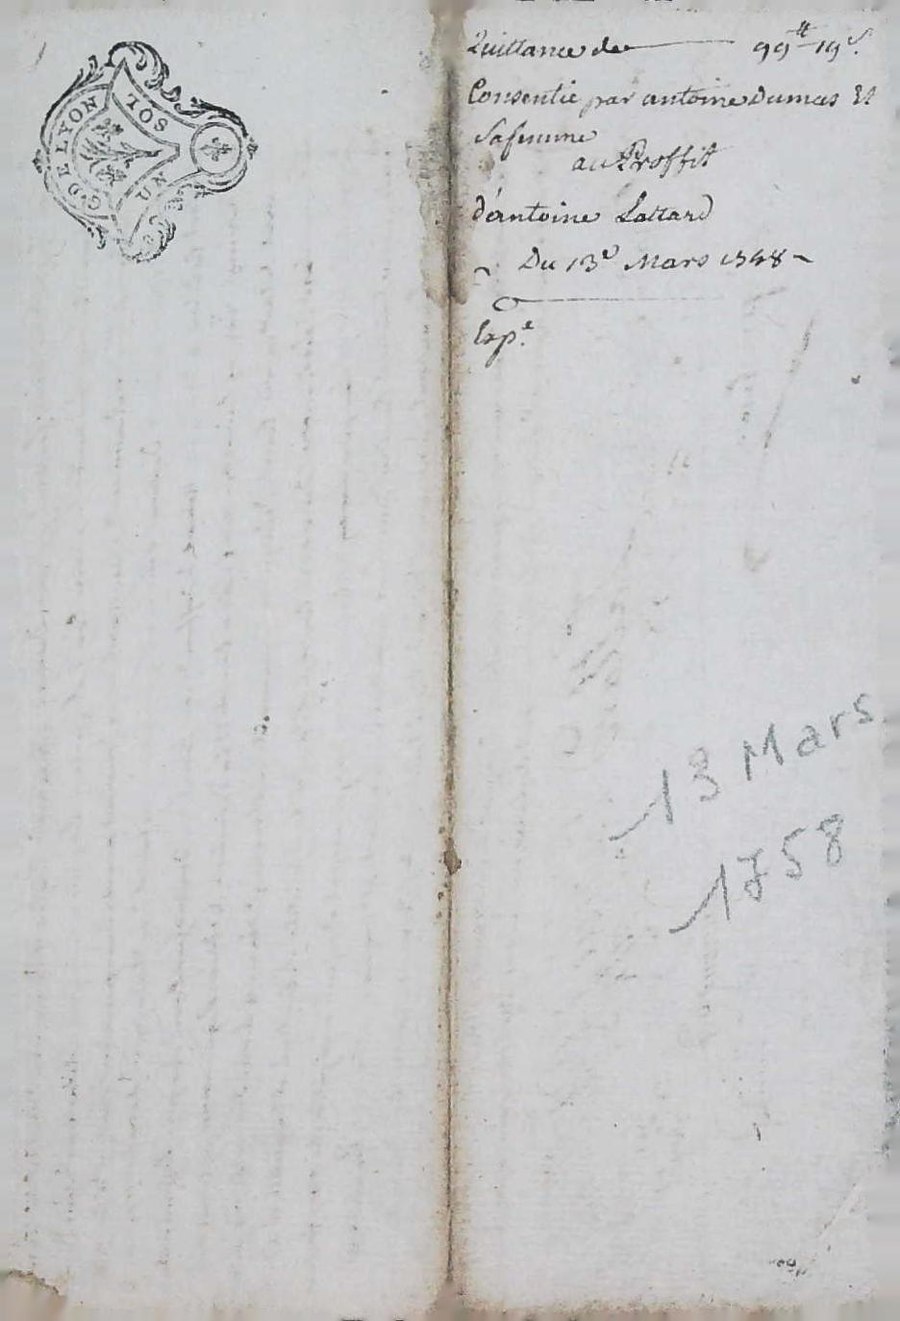 G. DE LYON
UN SOL
Quittance de 99tt 19s.
Consentie par antoine Dumas Et
Sa femme
au Proffit
d'antoine Lattard
Du 13e Mars 1758
Exp.e
13 Mars
1758